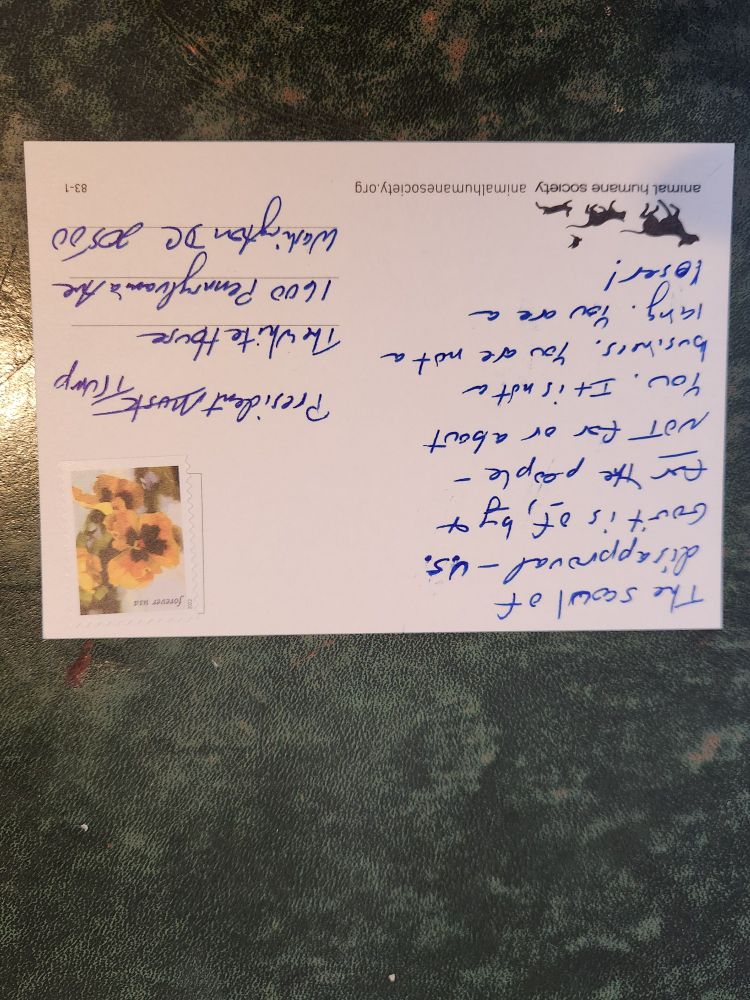 The scowl of
disapproval - U.S.
Gov't is of, by &
for the people -
NOT for or about
you. It is not a
business. You are not a
king. You are a
loser!
animal humane society animalhumanesociety.org
forever usa
President Musk
Trump
The White House
1600 Pennsylvania Ave
Washington DC 20500
83-1